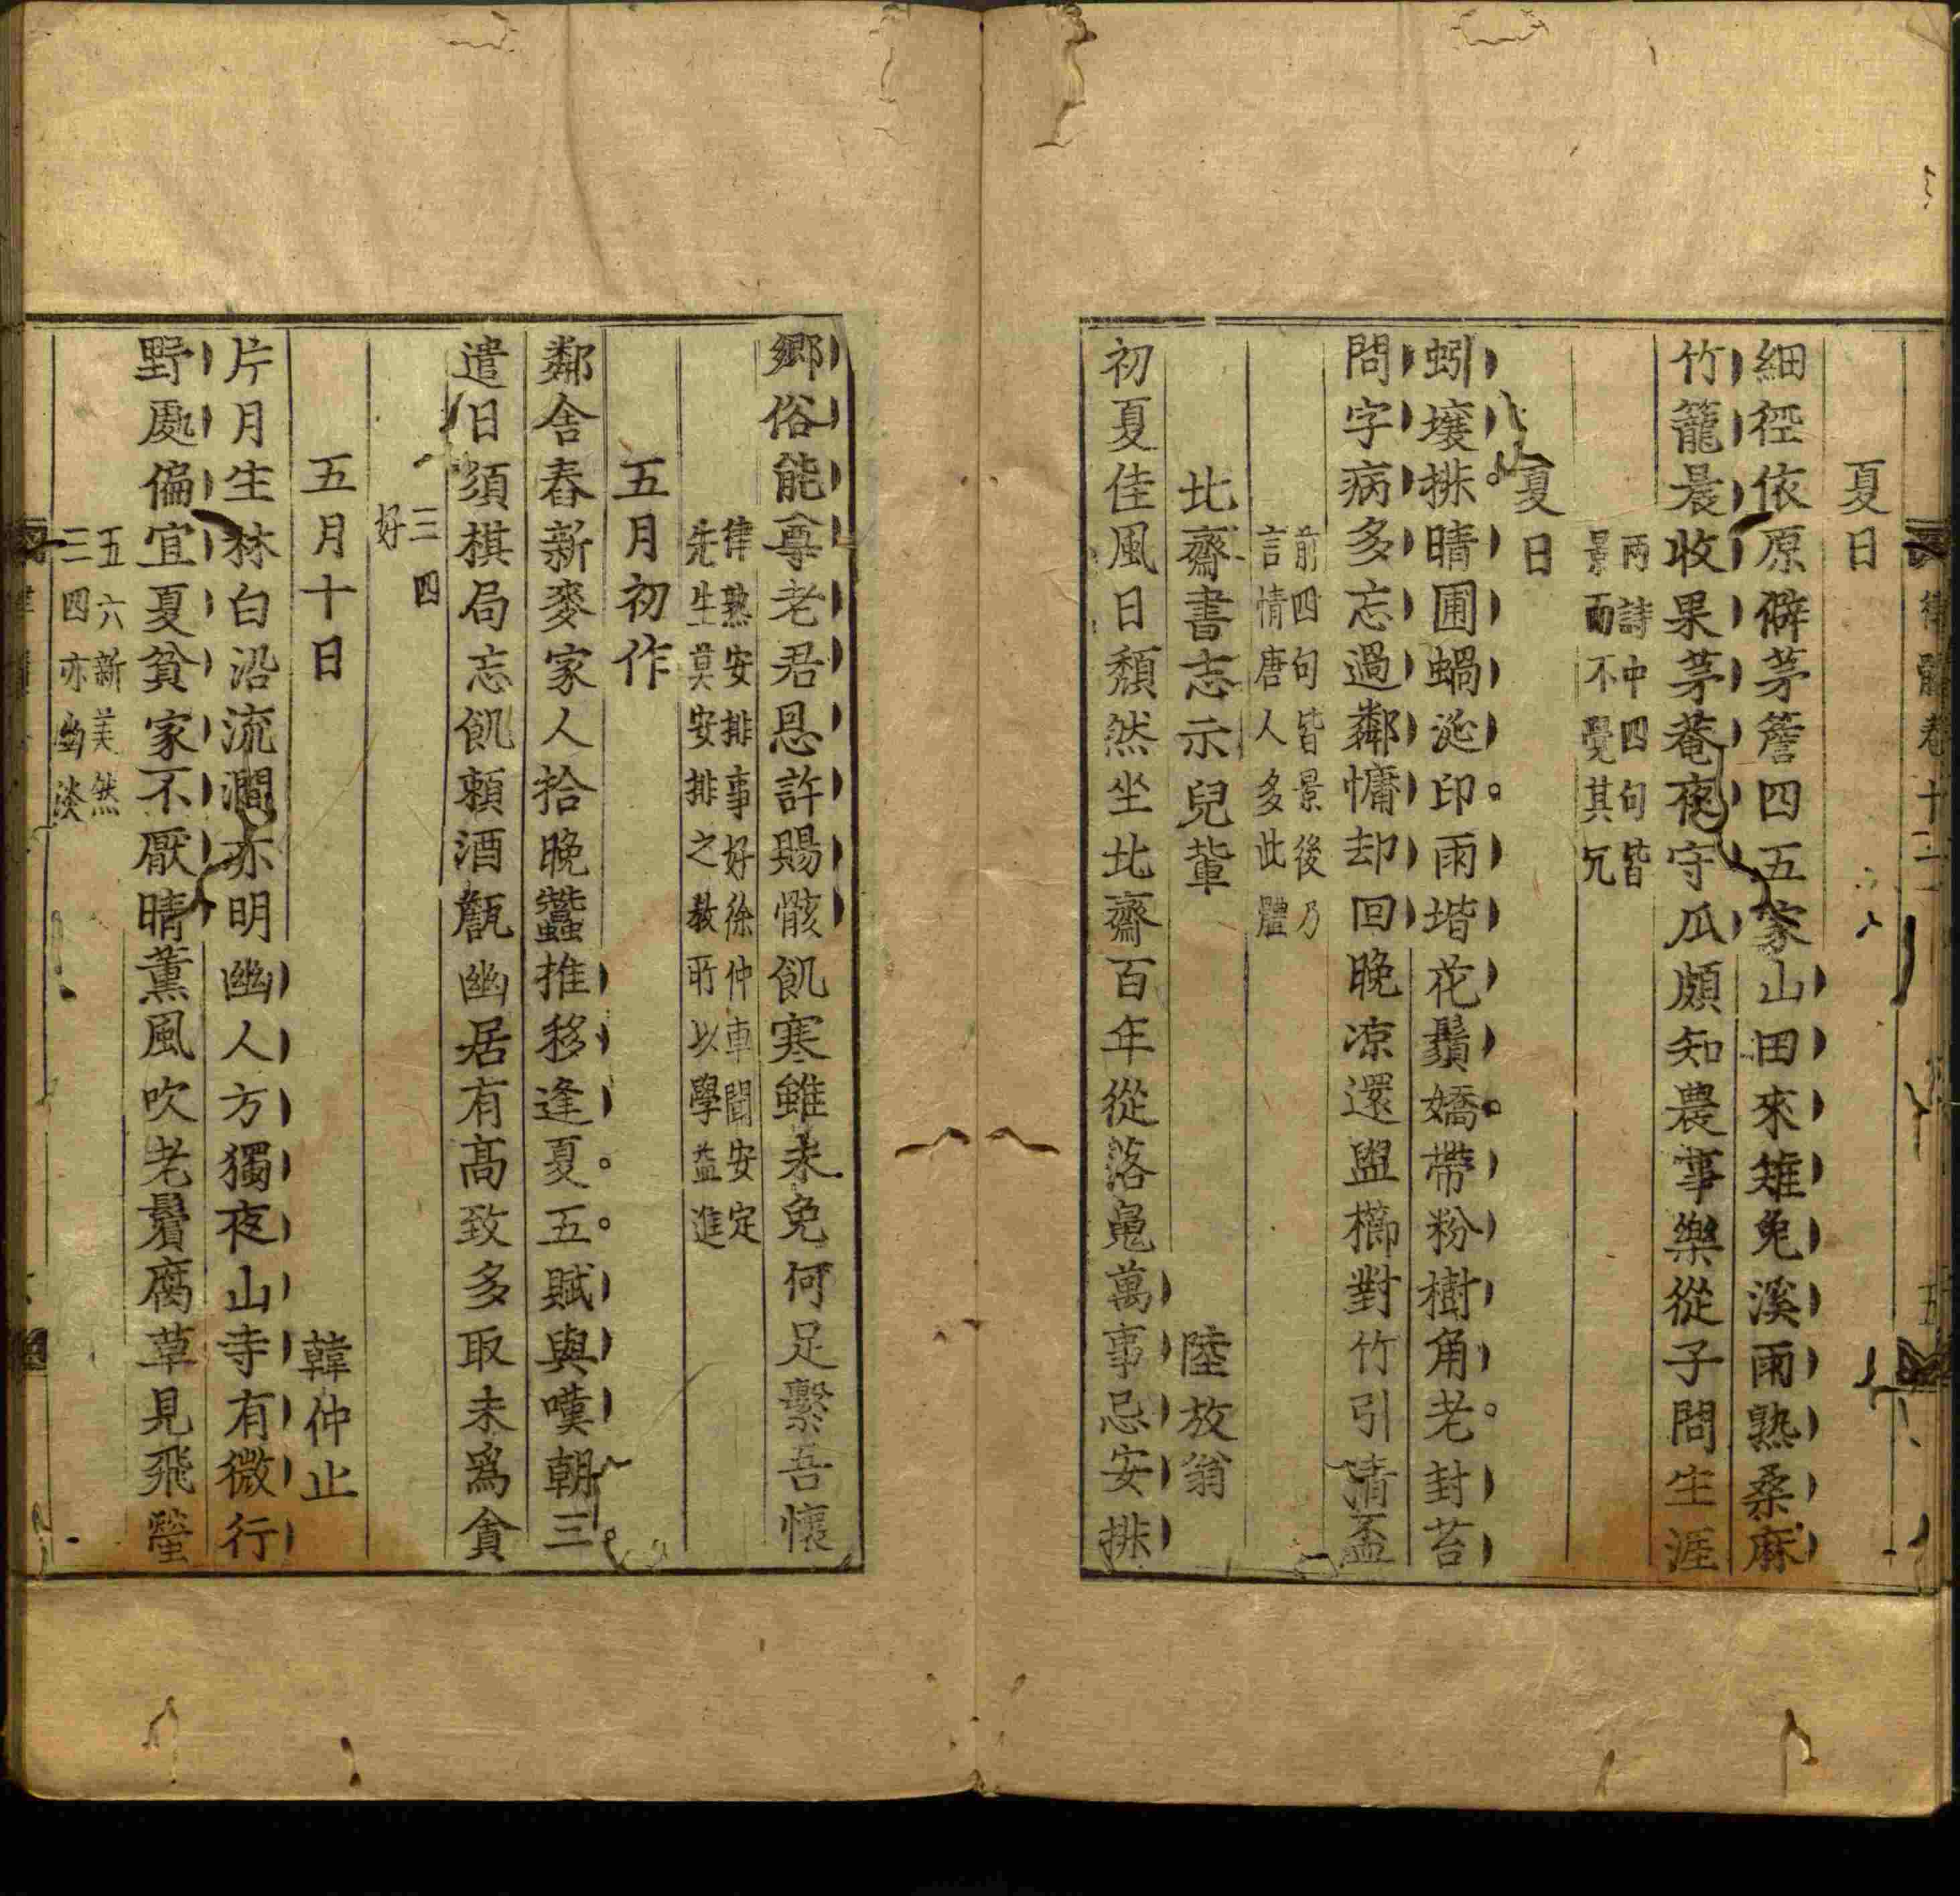 律髓卷十一
五
夏日
細徑依原僻茅簷四五家山田來雉兔溪雨熟桑麻
竹籠晨收果茅菴夜守瓜頗知農事樂從子問生涯
兩詩中四句皆
景而不覺其冗
夏日
蚓壤排晴圃蝸涎印雨堦花鬚嬌帶粉樹角老封苔
問字病多忘過鄰慵却回晚凉還盥櫛對竹引清盃
前四句皆景後乃
言情唐人多此體
北齋書志示兒輩 陸放翁
初夏佳風日頹然坐北齋百年從落魄萬事忌安排
鄉俗能尊老君恩許賜骸飢寒雖未免何足繫吾懷
律熟安排事好徐仲車聞安定
先生莫安排之教所以學益進
五月初作
鄰舍舂新麥家人拾晚蠶推移逢夏五賦與嘆朝三
遣日須棋局忘飢賴酒甔幽居有高致多取未爲貪
三四
好
五月十日 韓仲止
片月生林白沿流澗亦明幽人方獨夜山寺有微行
野處偏宜夏貧家不厭晴薰風吹老鬢腐草見飛螢
五六新美然
三四亦幽淡